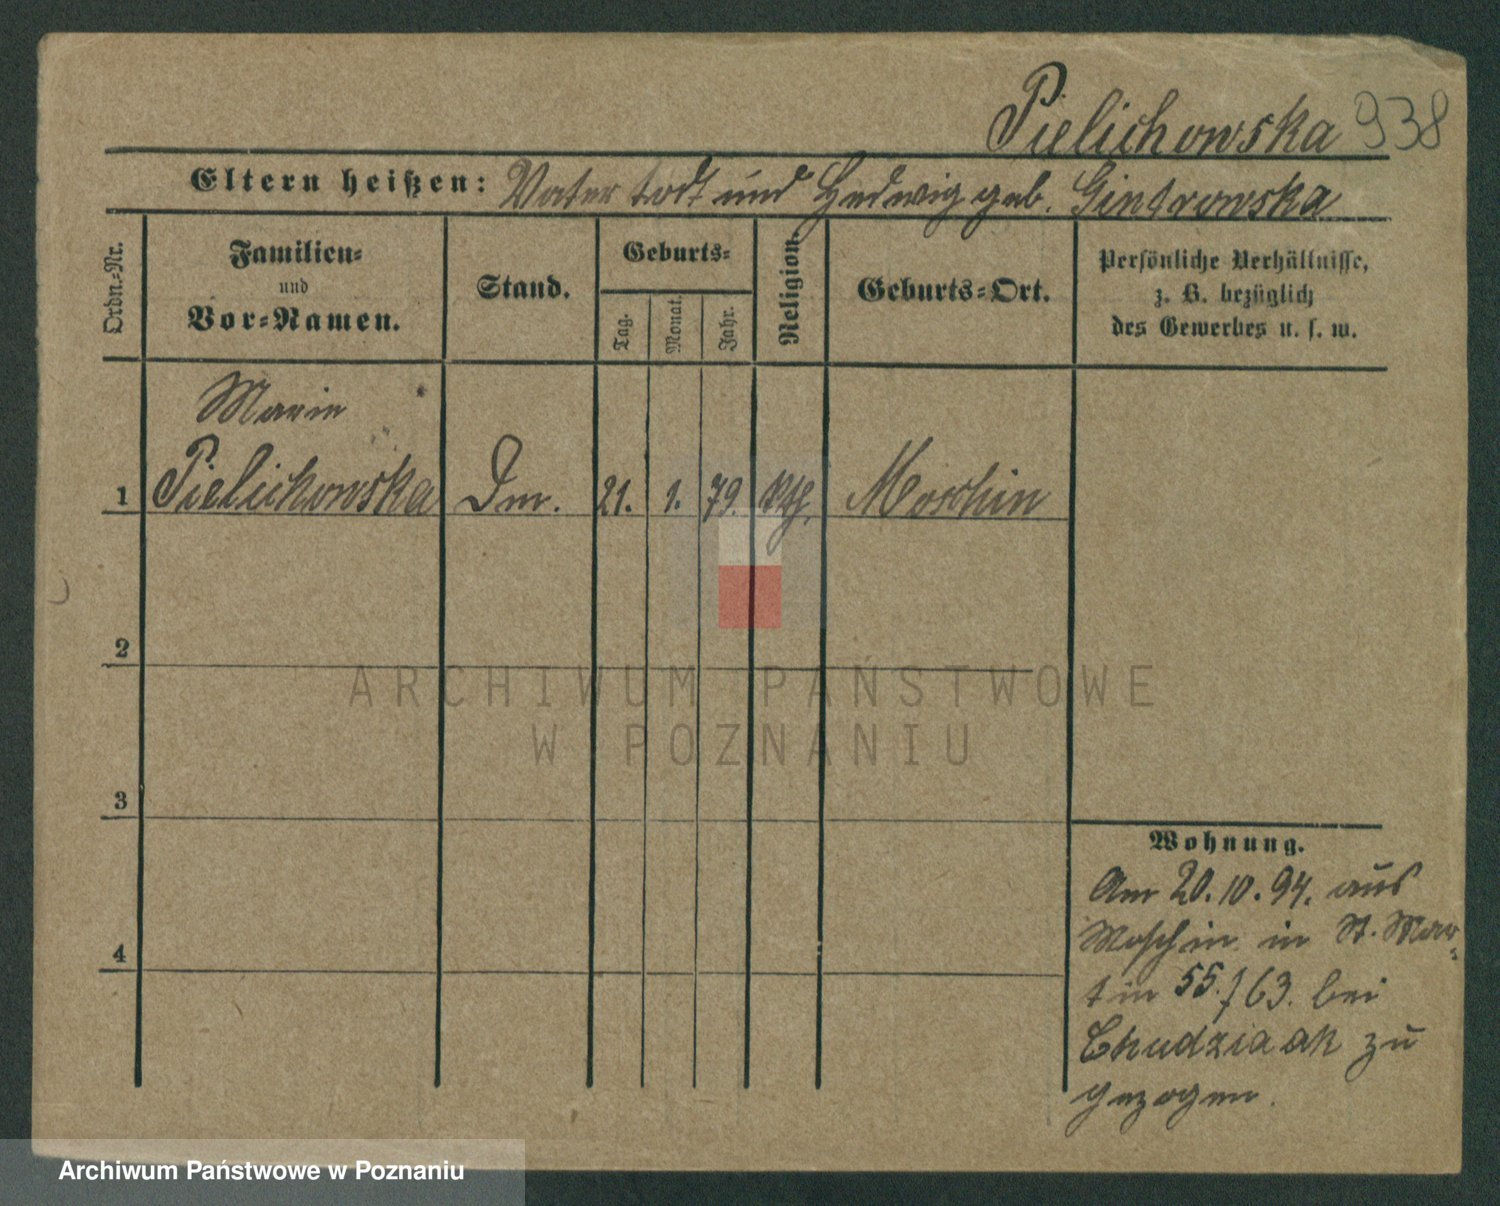 Pielichowska 938
Eltern heißen: Vater todt und Hedwig geb. Gintrowska
Ordn.-Nr.
Familien-
und
Vor-Namen.
Stand.
Geburts-
Tag.
Monat.
Jahr.
Religion.
Geburts-Ort.
Persönliche Verhältnisse,
z. B. bezüglich
des Gewerbes u. s. w.
Marie
1 Pielichowska Dm. 21. 1. 79. kth. Moschin
2
3
4
Wohnung.
Am 20.10.94. aus
Moschin in St. Mar-
tin 55./63. bei
Chudziaak zu
gezogen.
ARCHIWUM PAŃSTWOWE
W POZNANIU
Archiwum Państwowe w Poznaniu